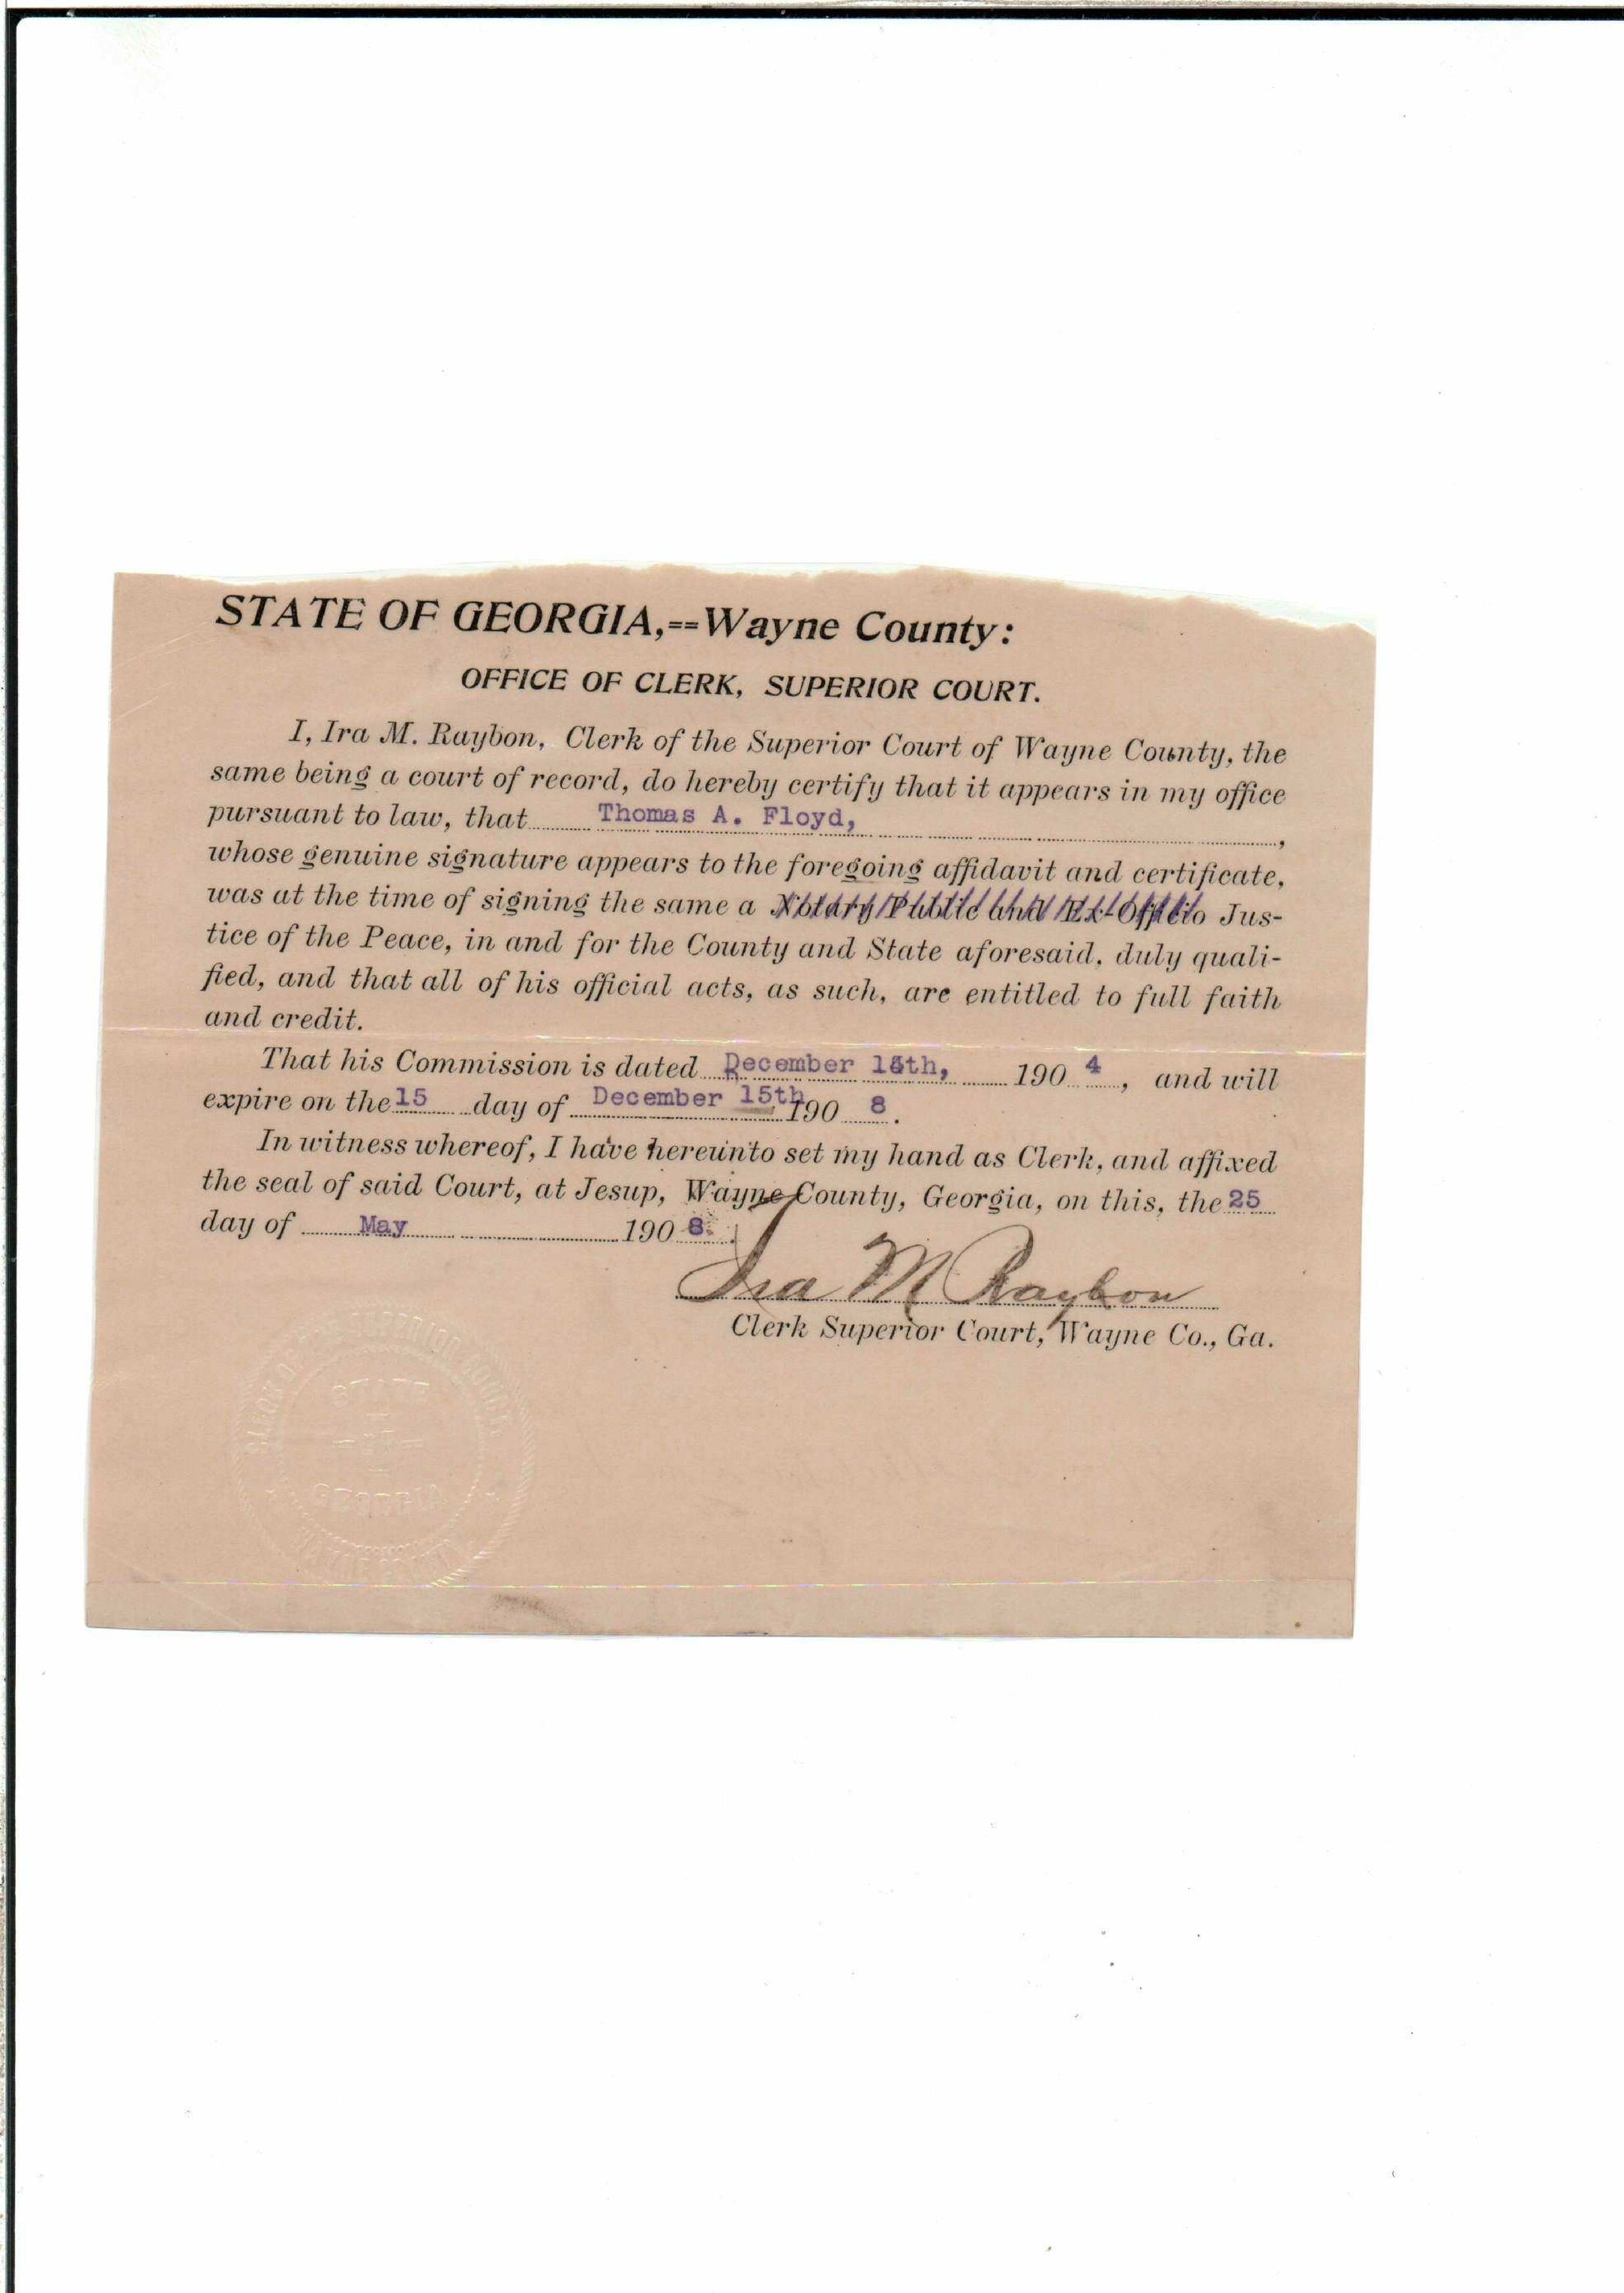 STATE OF GEORGIA,==Wayne County:
OFFICE OF CLERK, SUPERIOR COURT.
I, Ira M. Raybon, Clerk of the Superior Court of Wayne County, the
same being a court of record, do hereby certify that it appears in my office
pursuant to law, that Thomas A. Floyd, ,
whose genuine signature appears to the foregoing affidavit and certificate,
was at the time of signing the same a Notary Public and Ex-Officio Jus-
tice of the Peace, in and for the County and State aforesaid, duly quali-
fied, and that all of his official acts, as such, are entitled to full faith
and credit.
That his Commission is dated December 190 4, and will
expire on the 15 day of December 15th 190 8.
In witness whereof, I have hereunto set my hand as Clerk, and affixed
the seal of said Court, at Jesup, Wayne County, Georgia, on this, the 25
day of May 190 8.
Ira M Raybon
Clerk Superior Court, Wayne Co., Ga.
STATE
GEORGIA